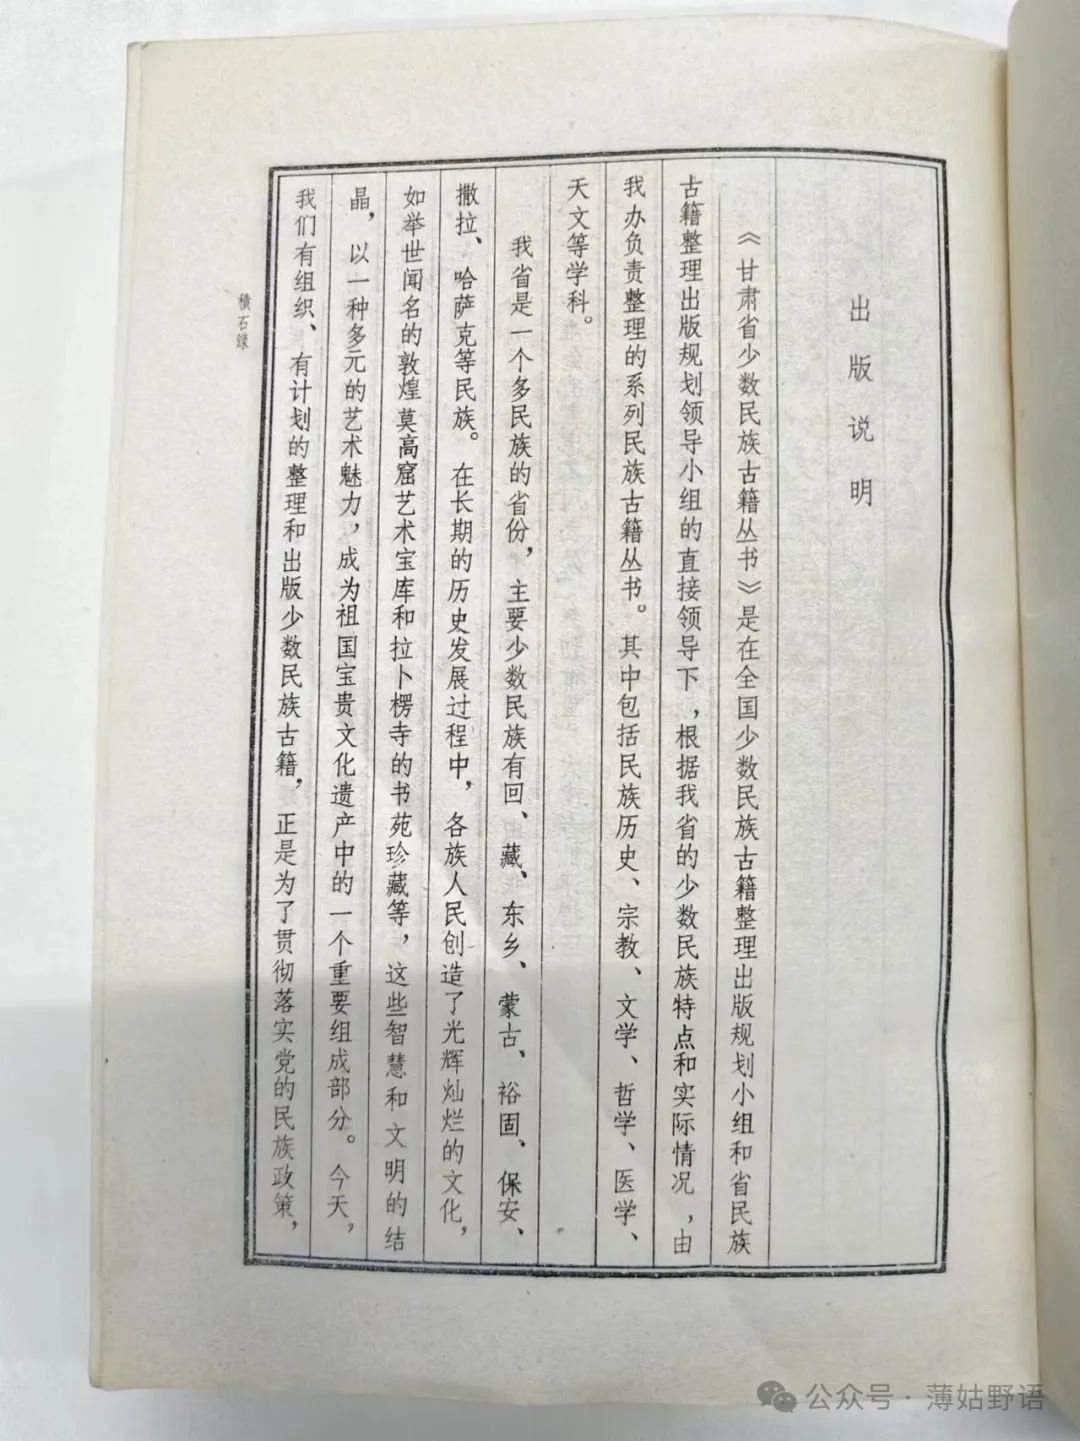 出版说明
《甘肃省少数民族古籍丛书》是在全国少数民族古籍整理出版规划小组和省民族
古籍整理出版规划领导小组的直接领导下，根据我省的少数民族特点和实际情况，由
我办负责整理的系列民族古籍丛书。其中包括民族历史、宗教、文学、哲学、医学、
天文等学科。
我省是一个多民族的省份，主要少数民族有回、藏、东乡、蒙古、裕固、保安、
撒拉、哈萨克等民族。在长期的历史发展过程中，各族人民创造了光辉灿烂的文化，
如举世闻名的敦煌莫高窟艺术宝库和拉卜楞寺的书苑珍藏等，这些智慧和文明的结
晶，以一种多元的艺术魅力，成为祖国宝贵文化遗产中的一个重要组成部分。今天，
我们有组织、有计划的整理和出版少数民族古籍，正是为了贯彻落实党的民族政策，
積石録
公众号·薄姑野语